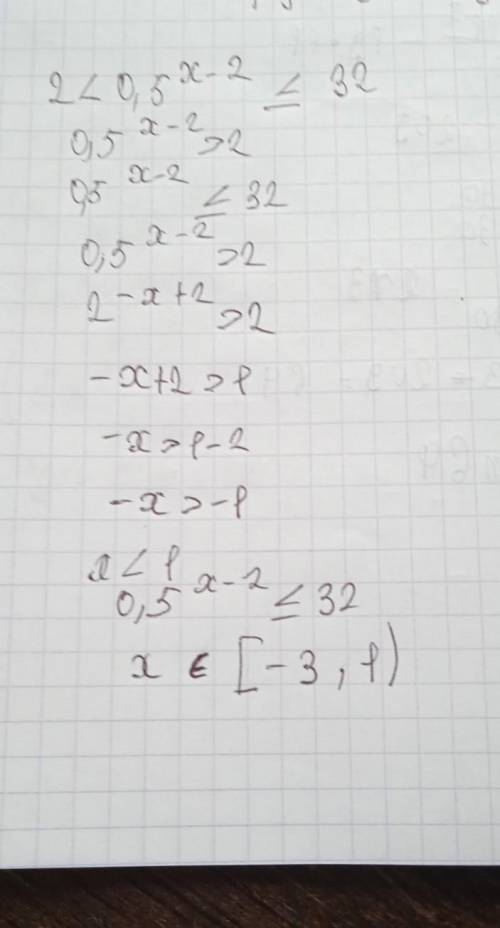 2 < 0,5^{x-2} ≤ 32
0,5^{x-2} > 2
0,5^{x-2} ≤ 32
0,5^{x-2} > 2
2^{-x+2} > 2
-x+2 > 1
-x > 1-2
-x > -1
x < 1
0,5^{x-2} ≤ 32
x ∈ [-3, 1)